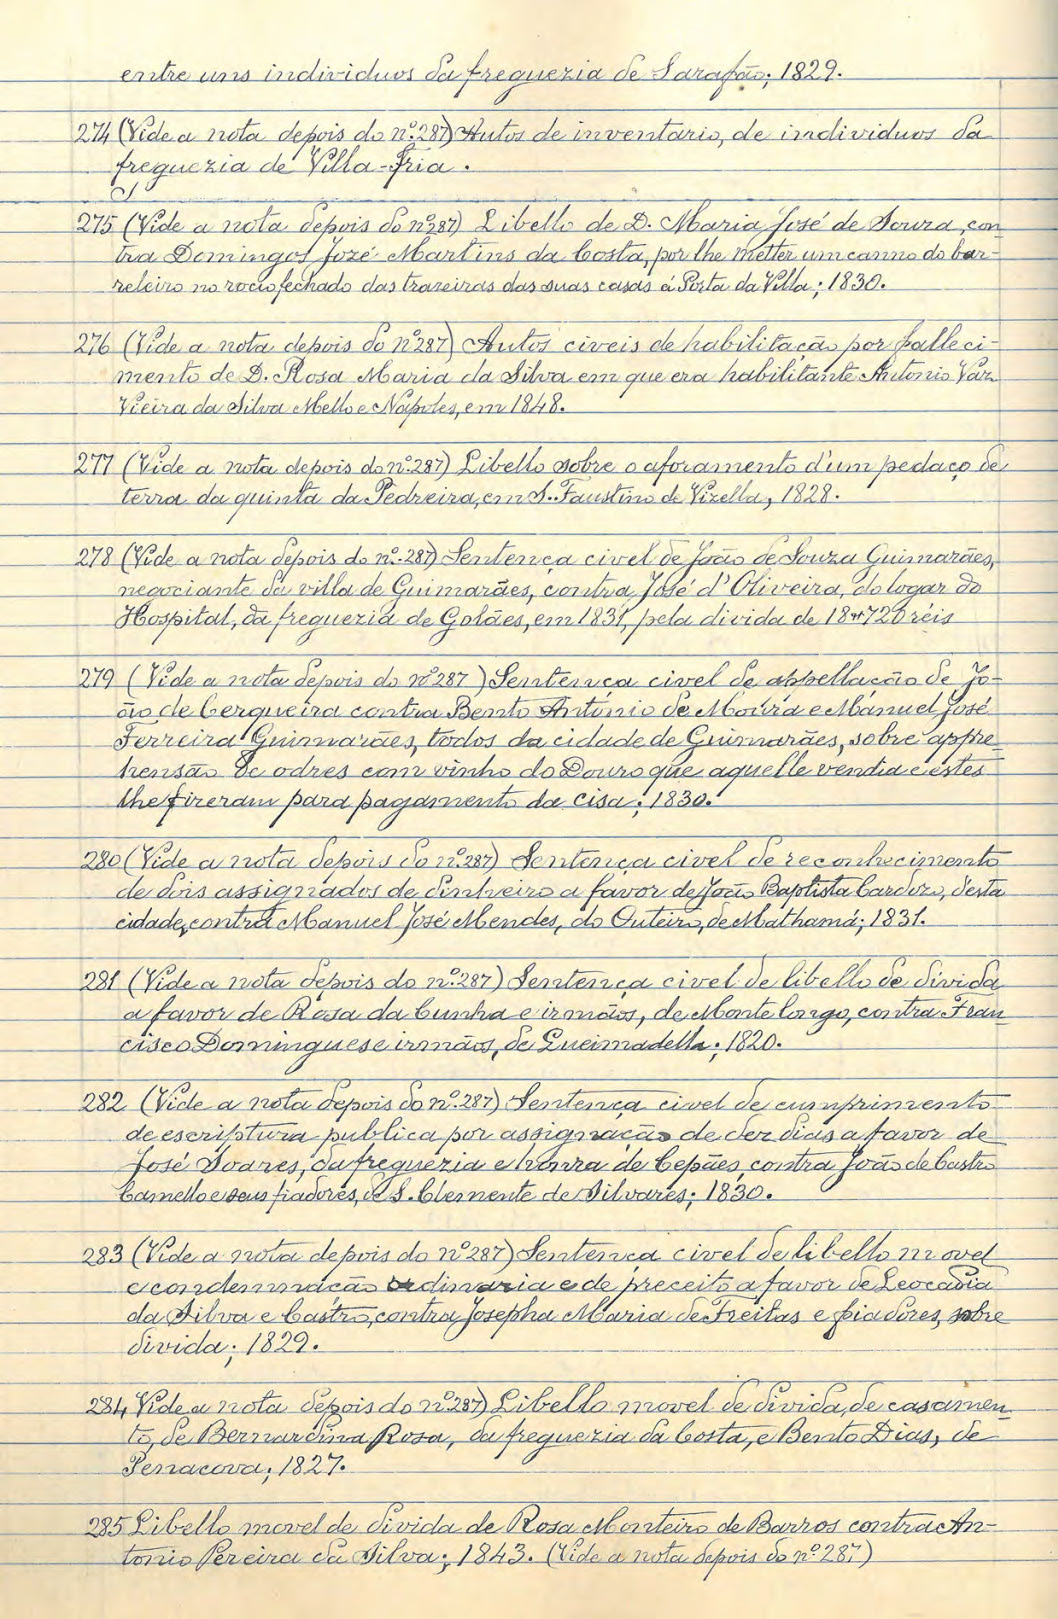 entre uns individuos da freguezia de Sarafão; 1829.
274 (Vide a nota depois do nº.287) Autos de inventario, de individuos da
freguezia de Villa-Fria.
275 (Vide a nota depois do nº287) Libello de D. Maria José de Souza, con-
tra Domingos José Martins da Costa, por lhe metter um canno do bar-
releiro no rocio fechado das trazeiras das suas casas á Porta da Villa; 1830.
276 (Vide a nota depois do nº287) Autos civeis de habilitação por falleci-
mento de D. Rosa Maria da Silva em que era habilitante Antonio Vaz
Vieira da Silva Mello e Napoles, em 1848.
277 (Vide a nota depois do nº.287) Libello sobre o aforamento d'um pedaço de
terra da quinta da Pedreira, em S. Faustino de Vizella, 1828.
278 (Vide a nota depois do nº.287) Sentença civel de João de Souza Guimarães,
negociante da villa de Guimarães, contra José d'Oliveira, do logar do
Hospital, da freguezia de Golães, em 1831, pela divida de 18$720 réis
279 (Vide a nota depois do nº287) Sentença civel de appellação de Jo-
ão de Cerqueira contra Bento Antonio de Moura e Manuel José
Ferreira Guimarães, todos da cidade de Guimarães, sobre appre-
hensão de odres com vinho do Douro que aquelle vendia e estes
lhe fizeram para pagamento da cisa; 1830.
280 (Vide a nota depois do nº.287) Sentença civel de reconhecimento
de dois assignados de dinheiro a favor de João Baptista Cardozo, d'esta
cidade, contra Manuel José Mendes, do Outeiro, de Mathamá; 1831.
281 (Vide a nota depois do nº.287) Sentença civel de libello de divida
a favor de Rosa da Cunha e irmãos, de Monte longo, contra Fran-
cisco Domingues e irmãos, de Queimadella; 1820.
282 (Vide a nota depois do nº.287) Sentença civel de cumprimento
de escriptura publica por assignação de dez dias a favor de
José Soares, da freguezia e honra de Cepães, contra João de Castro
Camello e seus fiadores, de S. Clemente de Silvares; 1830.
283 (Vide a nota depois do nº287) Sentença civel de libello movel
e condemnação ordinaria e de preceito a favor de Leocadia
da Silva e Castro, contra Josepha Maria de Freitas e fiadores, sobre
divida; 1829.
284 Vide a nota depois do nº287) Libello movel de divida, de casamen-
to, de Bernardina Rosa, da freguezia da Costa, e Bento Dias, de
Penacova; 1827.
285 Libello movel de divida de Rosa Monteiro de Barros contra An-
tonio Pereira da Silva; 1843. (Vide a nota depois do nº.287)